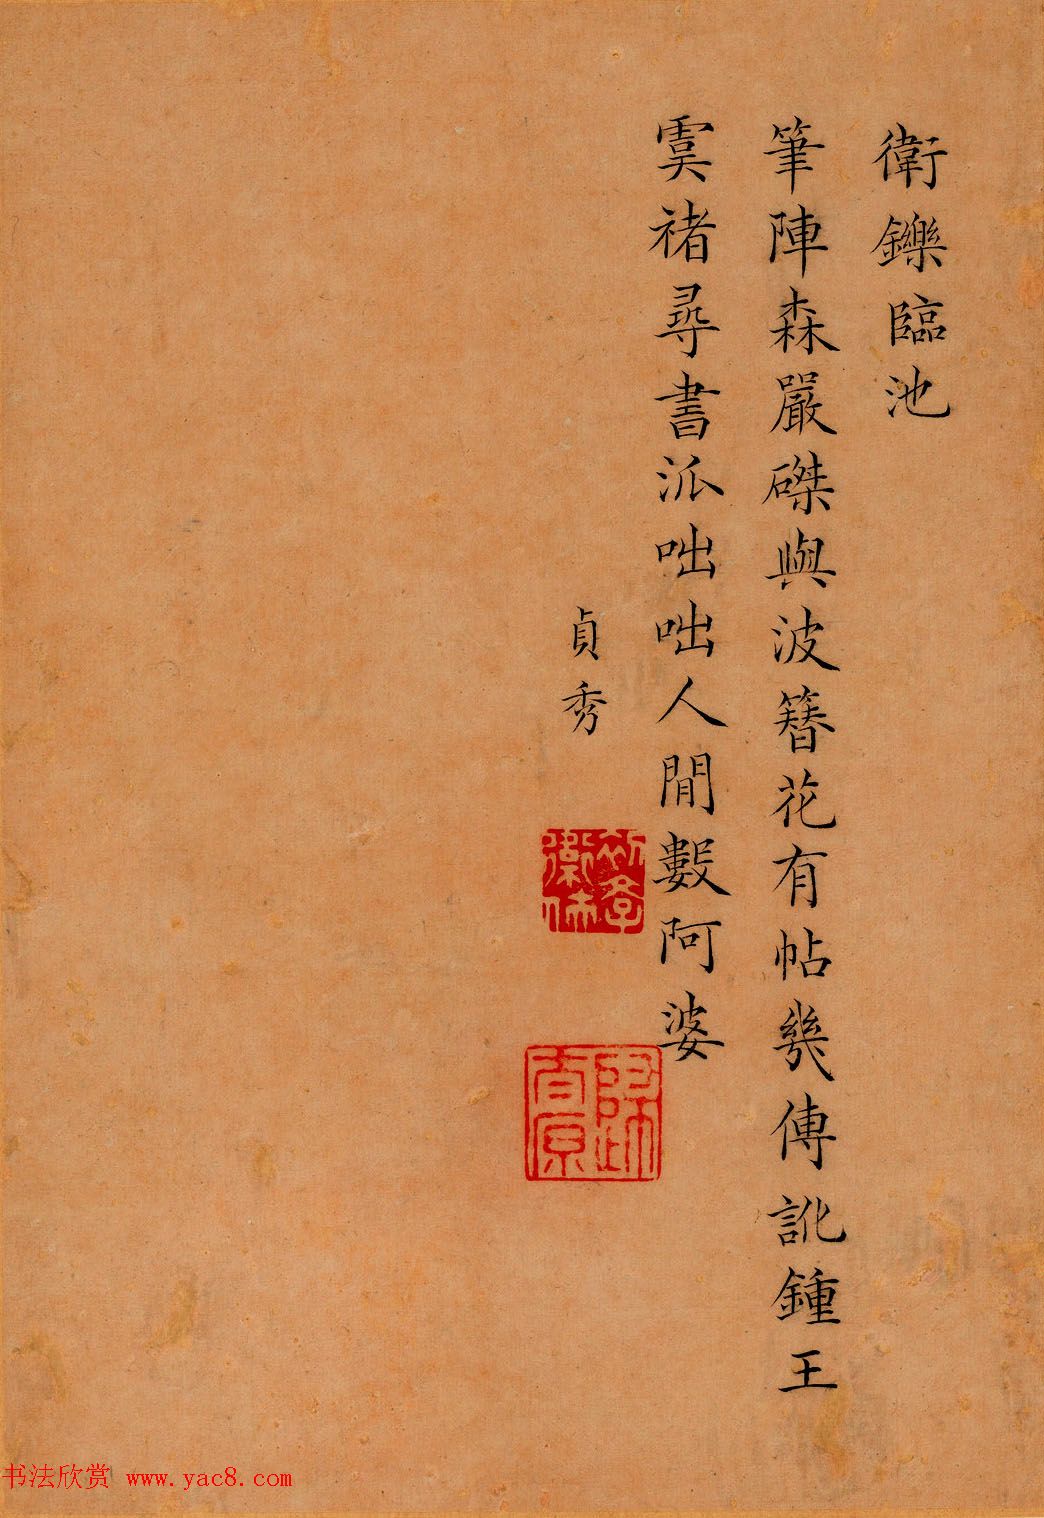 衛鑠臨池
筆陣森嚴磔與波簪花有帖幾傳訛鍾王
虞褚尋書派咄咄人閒數阿婆
貞秀
书法欣赏 www.yac8.com